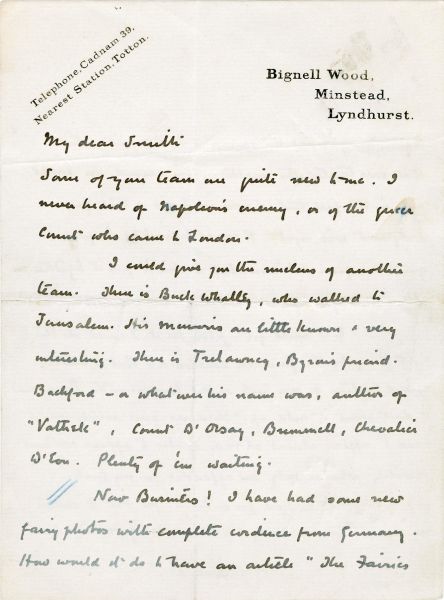 Telephone, Cadnam 39.
Nearest Station, Totton.
Bignell Wood,
Minstead,
Lyndhurst.
My dear Smith
Some of your team are quite new to me. I
never heard of Napoleon's enemy, or of the queer
Count who came to London.
I could give you the nucleus of another
team. There is Buck Whalley, who walked to
Jerusalem. His memoirs are little known & very
interesting. There is Trelawney, Byron's friend.
Backford - or what ever his name was, author of
"Vathek", Count D'Orsay, Brummell, Chevalier
D'Eon. Plenty of 'em waiting.
Now Business! I have had some new
fairy photos with complete evidence from Germany.
How would it do to have an article "The Fairies